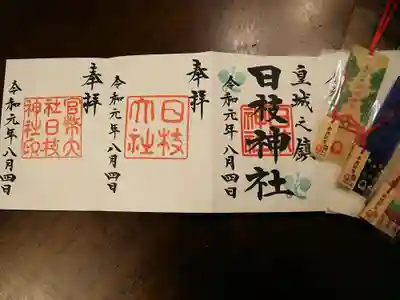 皇城之鎮
日枝神社
令和元年八月四日
奉拝
日枝
大社
令和元年八月四日
奉拝
官幣大
社日枝
神社印
令和元年八月四日